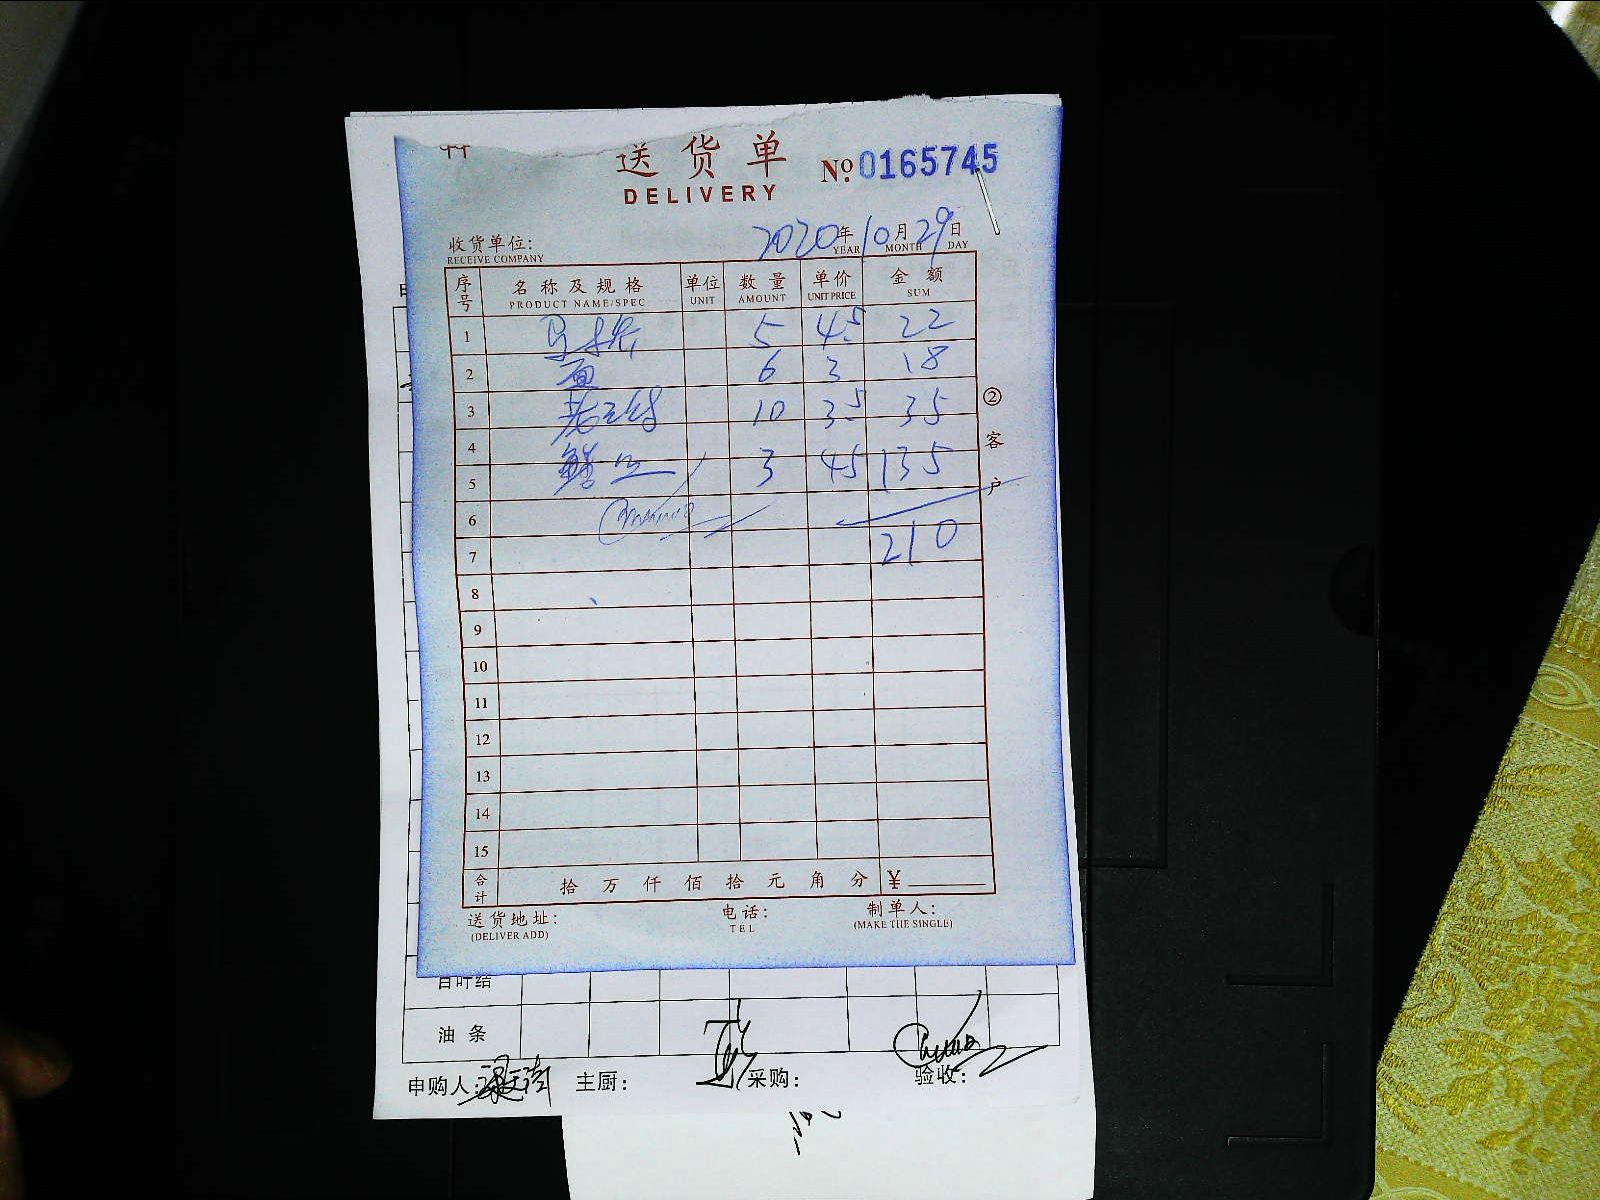 送货单
DELIVERY
№ 0165745
2020年10月29日
YEAR MONTH DAY
收货单位：
RECEIVE COMPANY
序号 名称及规格 单位 数量 单价 金额
PRODUCT NAME/SPEC UNIT AMOUNT UNIT PRICE SUM
1 5 4.5 22
2 面 6 3 18
3 10 3.5 35
4
5 3 45 135
6
7 210
8
9
10
11
12
13
14
15
合计 拾 万 仟 佰 拾 元 角 分 ¥
②客户
送货地址： 电话： 制单人：
(DELIVER ADD) TEL (MAKE THE SINGLE)
百叶结
油条
申购人： 主厨： 采购： 验收：